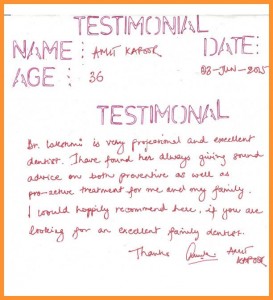 TESTIMONIAL
NAME : AMIT KAPOOR DATE:
AGE : 36 03-JUN-2015
TESTIMONAL
Dr. Lakshmi is very professional and excellent
dentist. I have found her always giving sound
advice on both preventive as well as
pro-active treatment for me and my family.
I would happily recommend here, if you are
looking for an excellent family dentist.
Thanks AMIT
KAPOOR